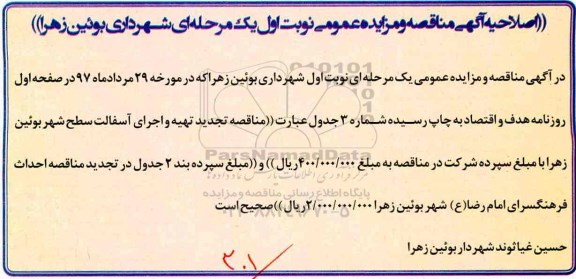 ((اصلاحیه آگهی مناقصه و مزایده عمومی نوبت اول یک مرحله ای شهرداری بوئین زهرا))
در آگهی مناقصه و مزایده عمومی یک مرحله ای نوبت اول شهرداری بوئین زهرا که در مورخه ۲۹ مردادماه ۹۷ در صفحه اول
روزنامه هدف و اقتصاد به چاپ رسیده شماره ۳ جدول عبارت ((مناقصه تجدید تهیه و اجرای آسفالت سطح شهر بوئین
زهرا با مبلغ سپرده شرکت در مناقصه به مبلغ ۴۰۰/۰۰۰/۰۰۰ریال)) و ((مبلغ سپرده بند ۲ جدول در تجدید مناقصه احداث
ParsNamadData
فرهنگسرای امام رضا(ع) شهر بوئین زهرا ۲/۰۰۰/۰۰۰/۰۰۰ریال))صحیح است
پایگاه اطلاع رسانی مناقصه و مزایده
حسین غیاثوند شهردار بوئین زهرا
۳۰۱